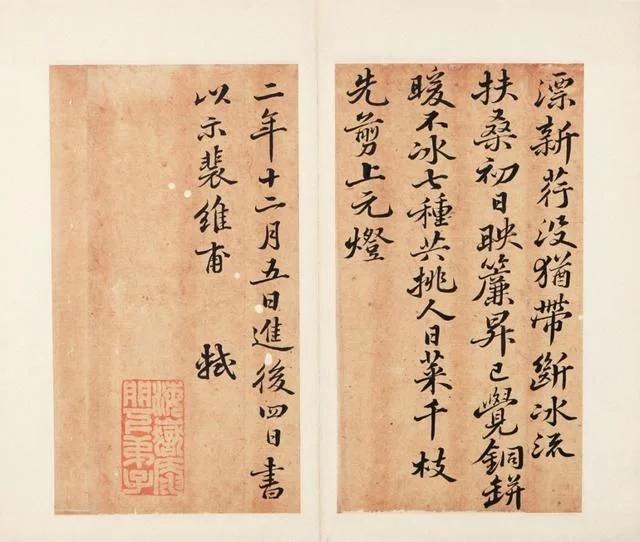 漂新荇没猶帶斷冰流
扶桑初日映簾昇已覺銅缾
暖不冰七種共挑人日菜千枝
先剪上元燈
二年十二月五日進後四日書
以示裴維甫
軾